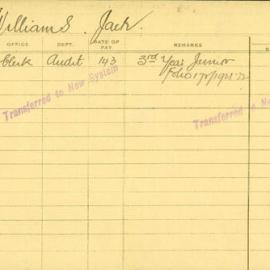 Williams. Jack.
OFFICE. DEPT. RATE OF PAY REMARKS
Clerk Audit 143 3rd Year Junior
Folio
Transferred to New System
Transferred to New